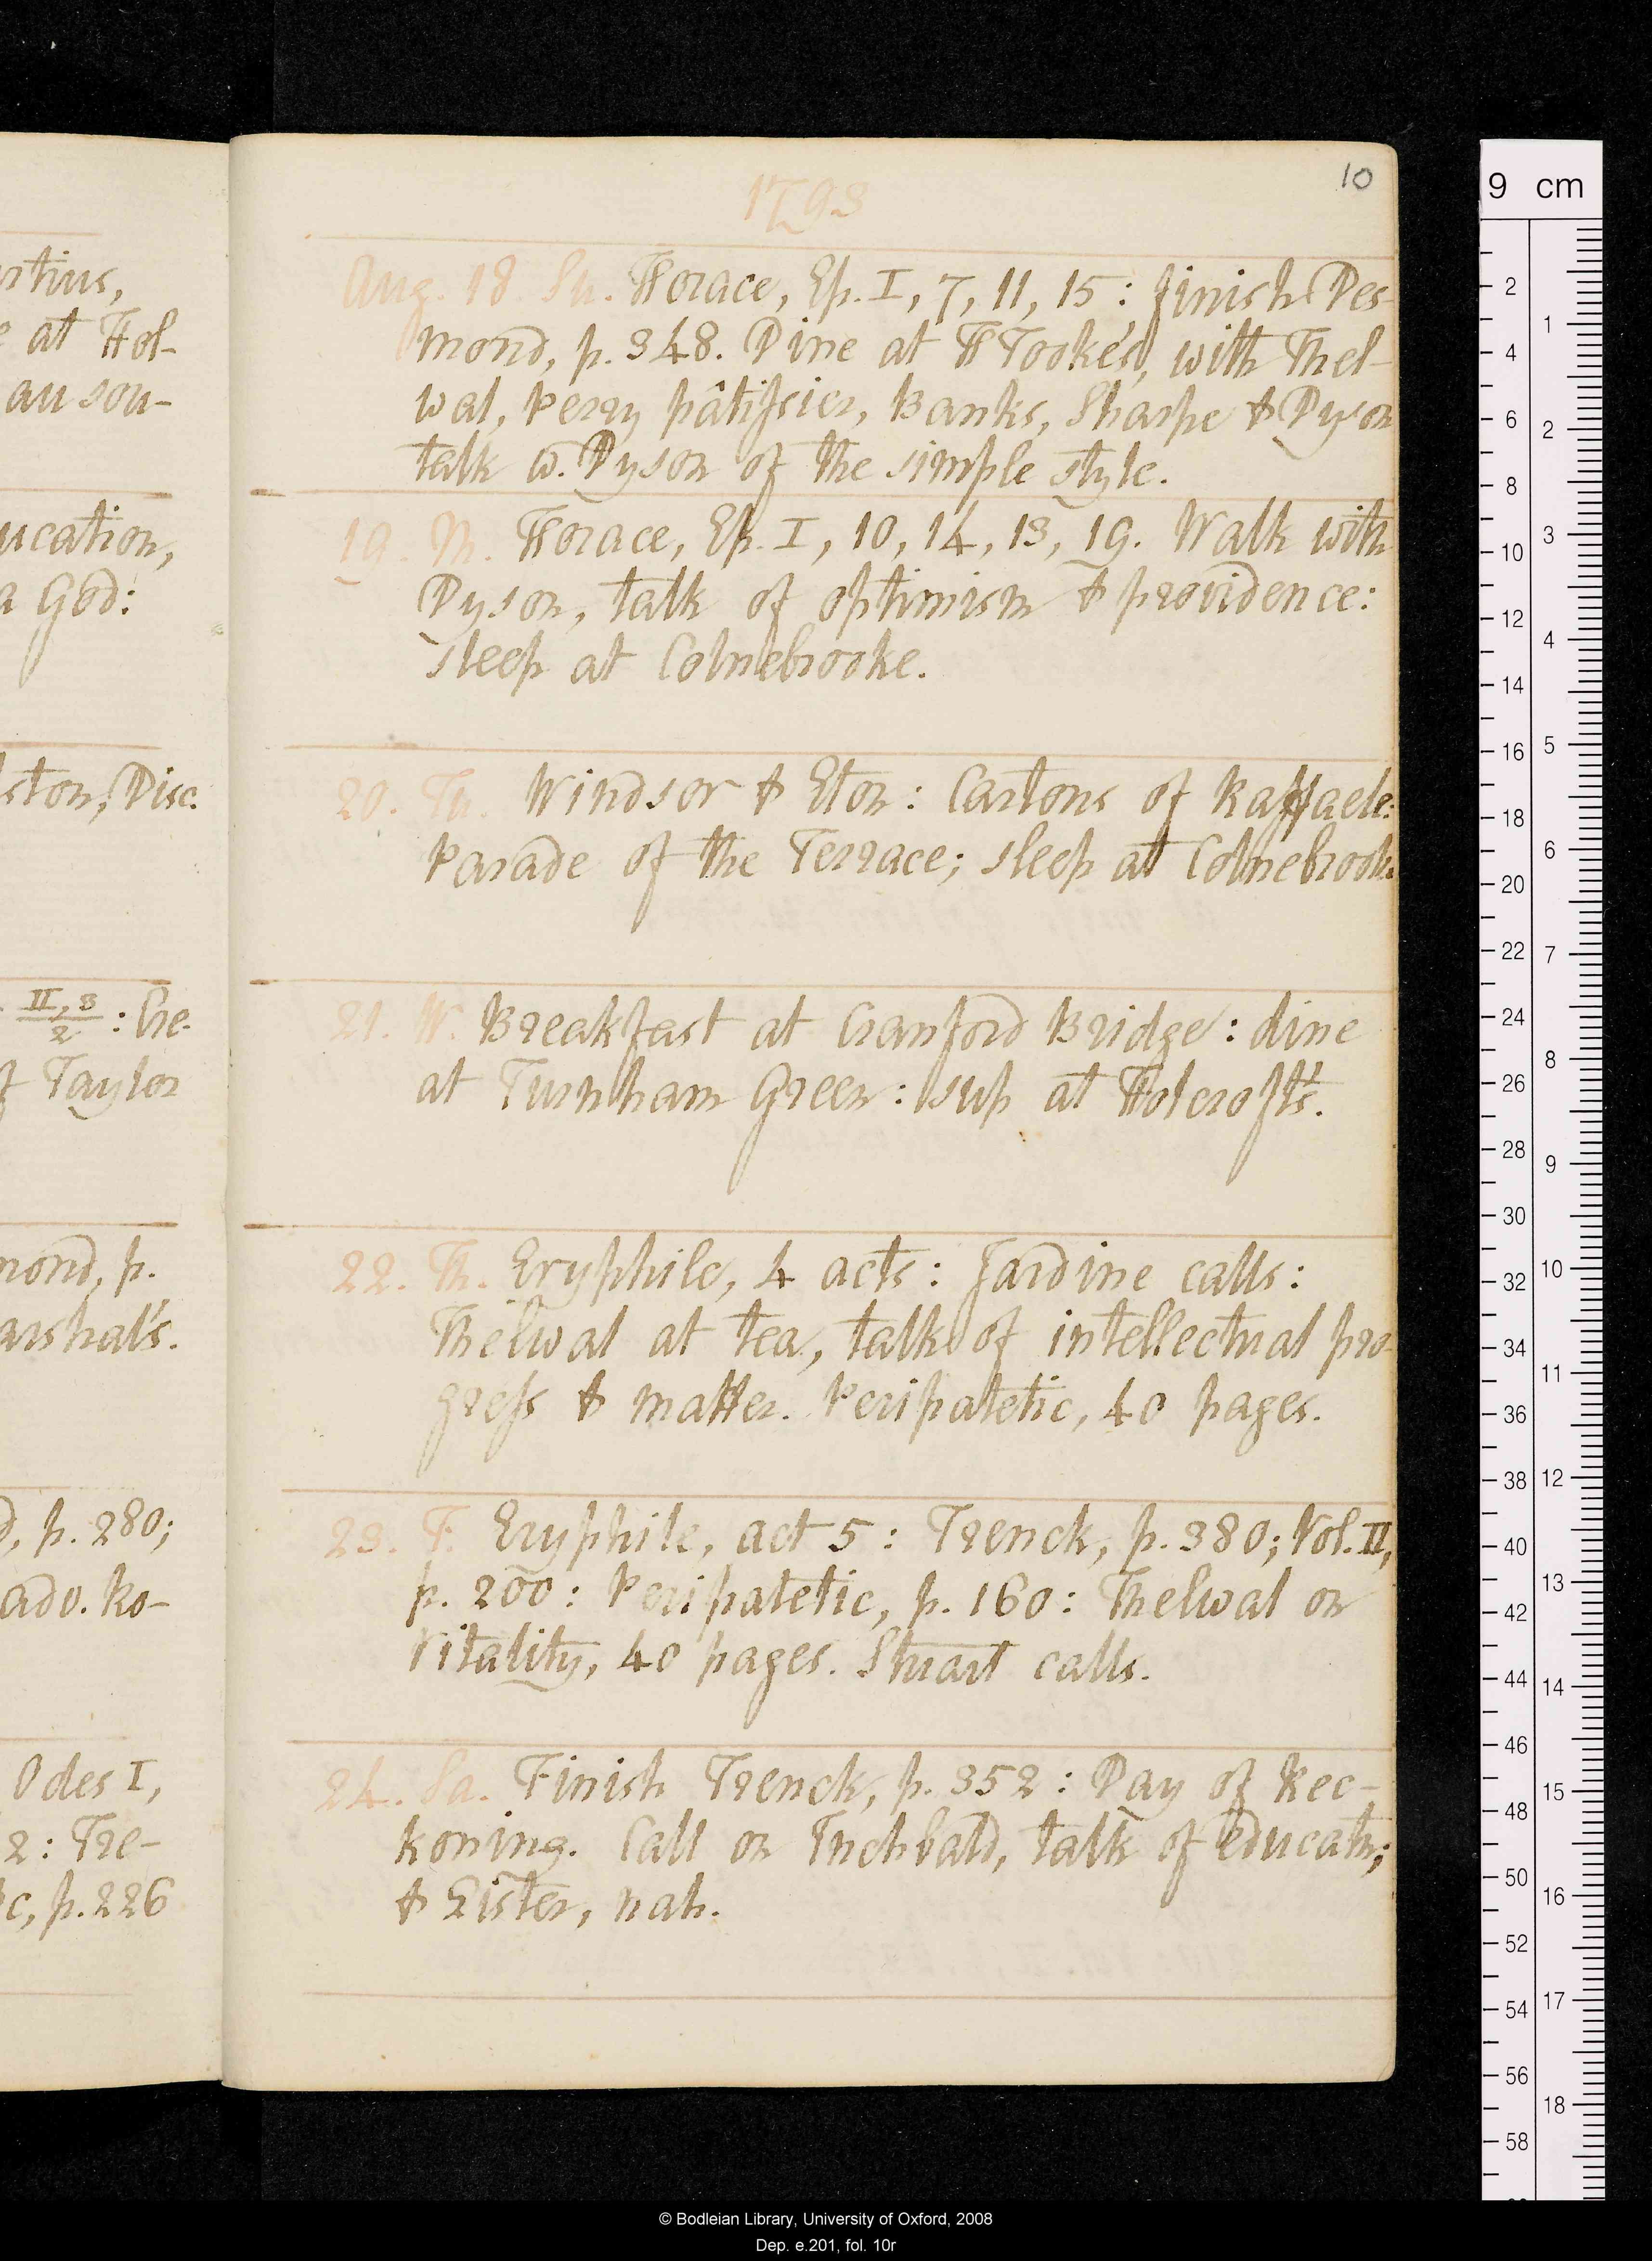 rtius,
e at Hol-
au sou-
ucation,
a God:
ston, Disc.
II, 3
2
: Cre-
f Taylor
mond, p.
arshal's.
d, p. 280;
ado. Ro-
Odes I,
2: Tre-
c, p. 226
10
1793
Aug. 18. Su. Horace, Ep. I, 7, 11, 15: finish Des-
mond, p. 348. Dine at H Tooke's, with Thel-
wal, Perry pâtissier, Banks, Sharpe & Dyson
talk w. Dyson of the simple style.
19. M. Horace, Ep. I, 10, 14, 13, 19. Walk with
Dyson, talk of optimism & providence:
sleep at Colnebrooke.
20. Tu. Windsor & Eton: Cartons of Raffaele:
Parade of the Terrace; sleep at Colnebrook.
21. W. Breakfast at Cranford Bridge: dine
at Turnham Green: sup at Holcroft's.
22. Th. Eryphile, 4 acts: Jardine calls:
Thelwal at tea, talk of intellectual pro-
gress & matter. Peripatetic, 40 pages.
23. F. Eryphile, act 5: Trenck, p. 380; Vol. II,
p. 200: Peripatetic, p. 160: Thelwal on
Vitality, 40 pages. Stuart calls.
24. Sa. Finish Trenck, p. 352: Day of Rec-
koning. Call on Inchbald, talk of educatn;
& Sister, nah.
9 cm
2
4
6
8
10
12
14
16
18
20
22
24
26
28
30
32
34
36
38
40
42
44
46
48
50
52
54
56
58
1
2
3
4
5
6
7
8
9
10
11
12
13
14
15
16
17
18
© Bodleian Library, University of Oxford, 2008
Dep. e.201, fol. 10r